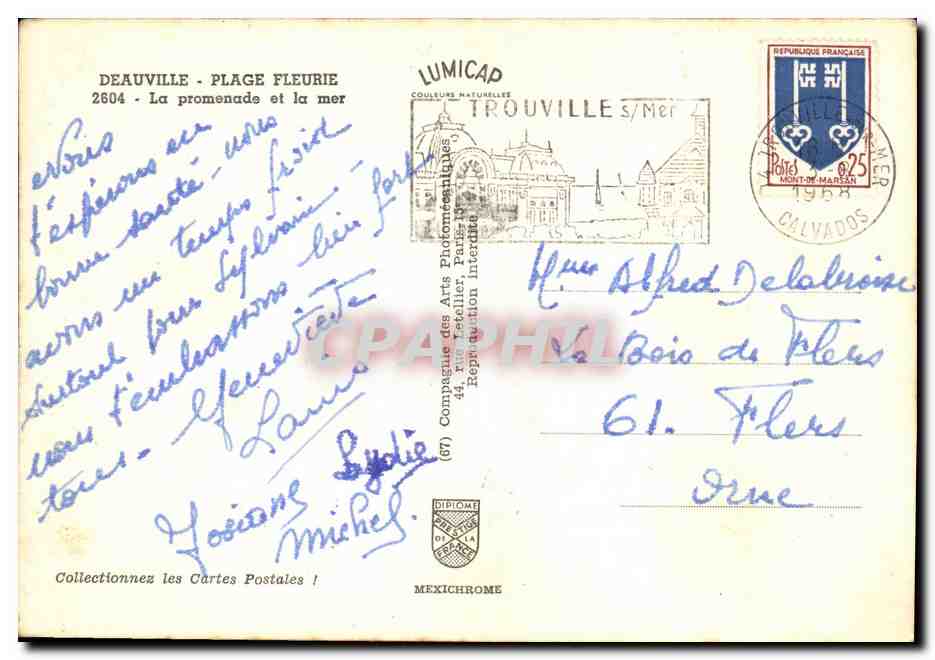 DEAUVILLE - PLAGE FLEURIE
2604 - La promenade et la mer
Nous
t'espérons en
bonne santé - nous
avons un temps froid
surtout pour Sylvain -
nous t'embrassons bien fort
tous - Geneviève
Josiane
Lydie
Michel.
Collectionnez les Cartes Postales !
LUMICAP
COULEURS NATURELLES
TROUVILLE s/Mer
(67) Compagnie des Arts Photomécaniques,
44, rue Letellier, Paris-15
Reproduction interdite
DIPLOME
PRESTIGE
DE LA
FRANCE
MEXICHROME
REPUBLIQUE FRANÇAISE
POSTES 0,25
MONT-DE-MARSAN
TROUVILLE MER
1968
CALVADOS
Mme Alfred
Le Bois de Flers
61. Flers
Orne
CPAPHIL